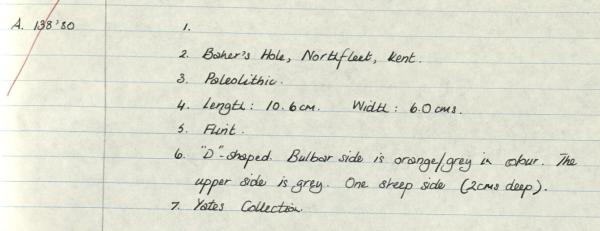 A. 138'80 1.
2. Baker's Hole, Northfleet, Kent.
3. Paleolithic.
4. Length: 10.6cm. Width: 6.0cms.
5. Flint.
6. "D"-shaped. Bulbar side is orange/grey in colour. The
upper side is grey. One steep side (2cms deep).
7. Yates Collection.